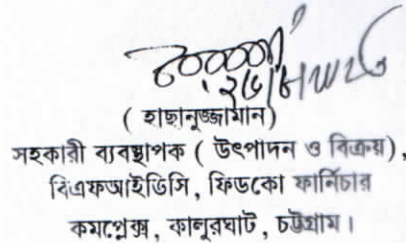 ( হাছানুজ্জামান)
সহকারী ব্যবস্থাপক ( উৎপাদন ও বিক্রয়) ,
বিএফআইডিসি , ফিডকো ফার্নিচার
কমপ্লেক্স , কালুরঘাট , চট্টগ্রাম ।